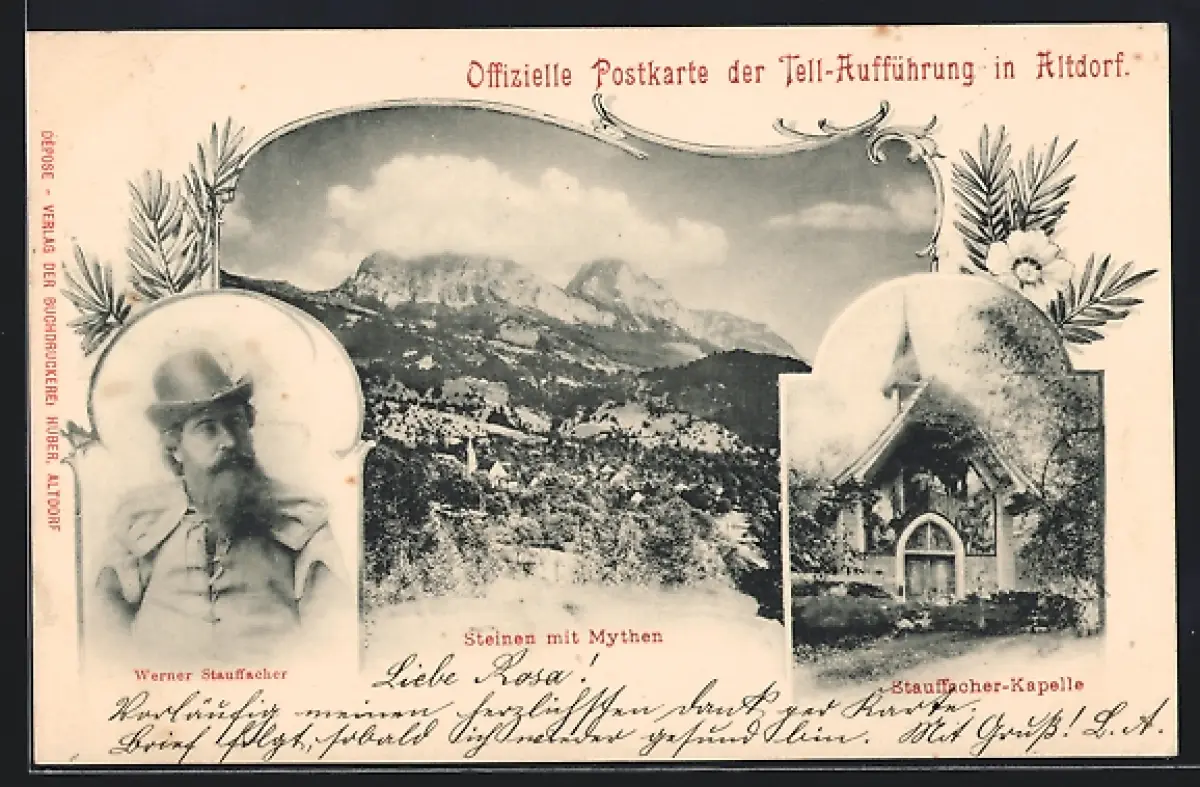 Offizielle Postkarte der Tell-Aufführung in Altdorf.
DÉPOSÉ - VERLAG DER BUCHDRUCKEREI HUBER, ALTDORF
Steinen mit Mythen
Werner Stauffacher
Stauffacher-Kapelle
Liebe Rosa!
Vorläufig meinen herzlichsten Dank per Karte.
Brief folgt, sobald ich wieder gesund bin. Mit Gruß! L. A.